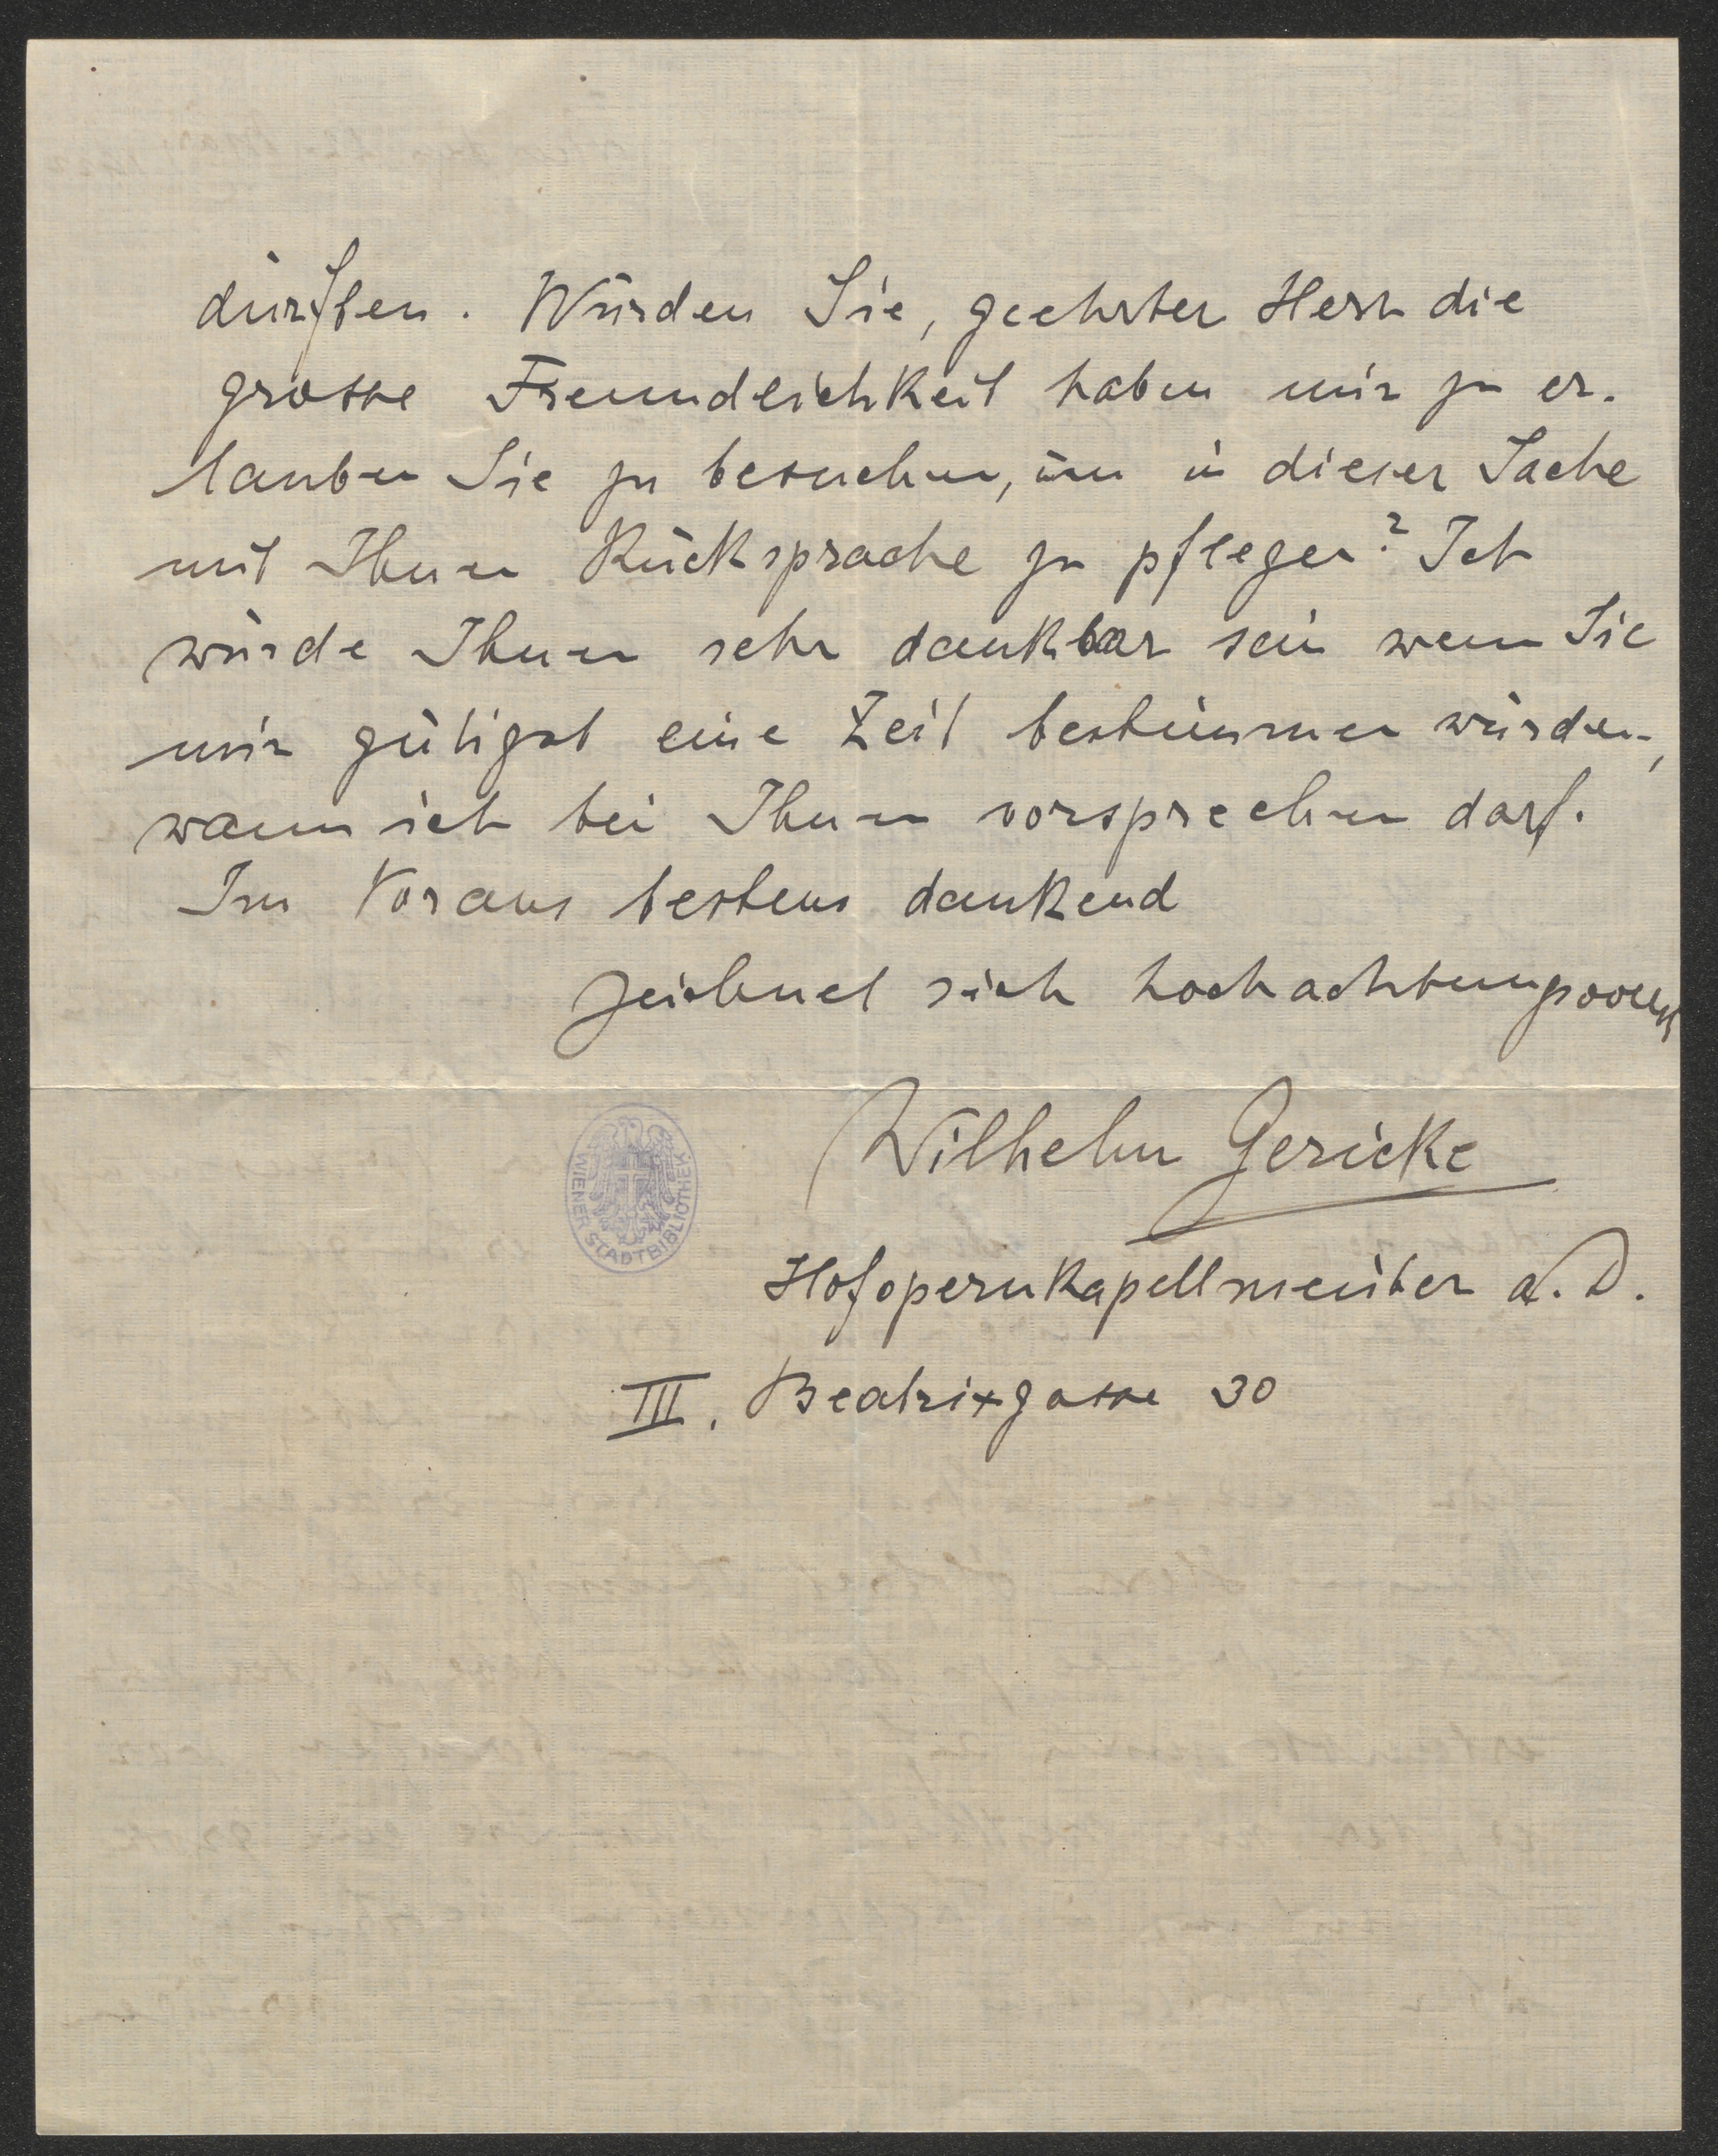 dürften. Würden Sie, geehrter Herr die
grosse Freundlichkeit haben mir zu er-
lauben Sie zu besuchen, um in dieser Sache
mit Ihnen Rücksprache zu pflegen? Ich
würde Ihnen sehr dankbar sein wenn Sie
mir gütigst eine Zeit bestimmen würden,
wann ich bei Ihnen vorsprechen darf.
Im Voraus bestens dankend
zeichnet sich hochachtungsvollst
Wilhelm Gericke
WIENER STADTBIBLIOTHEK
Hofopernkapellmeister a. D.
III. Beatrixgasse 30